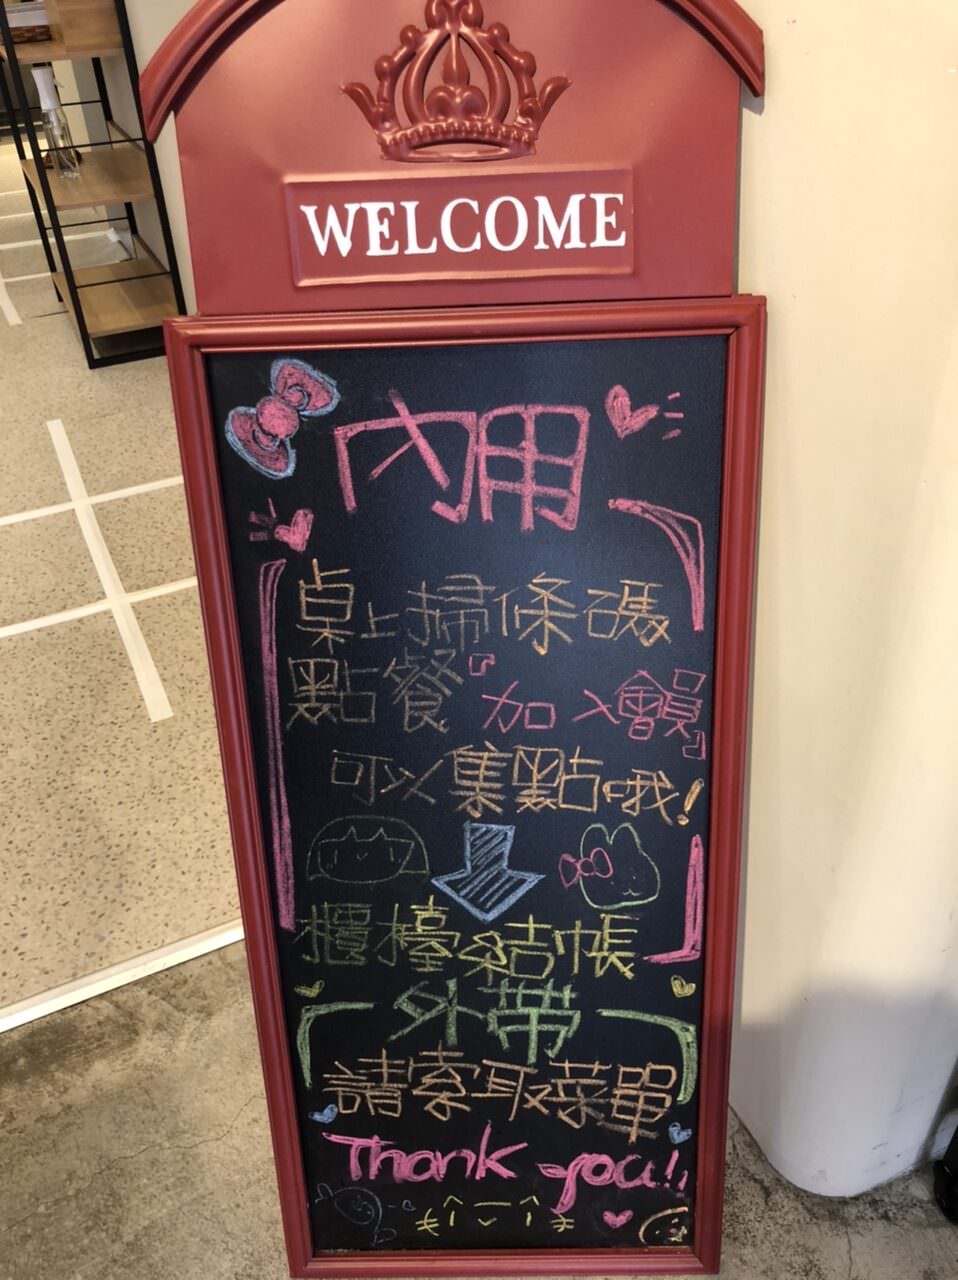 WELCOME
內用
桌上掃條碼
點餐『加入會員』
可以集點哦!
櫃檯結帳
外帶
請索取菜單
Thank you!!